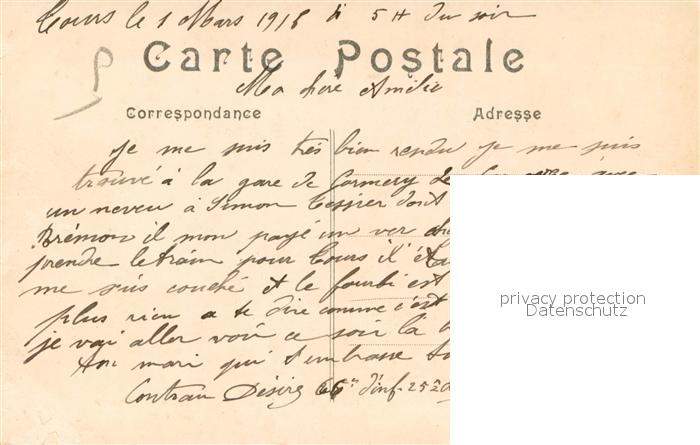 Tours le 1 Mars 1915 à 5H du soir
Carte Postale
Ma chère Amélie
Correspondance
Adresse
Je me suis très bien rendu je me suis
trouvé à la gare de Cormery
un neveu à Simon Tessier dont
Brémon il mon payé un ver
prendre le train pour Tours il
me suis couché et le fourbi est
plus rien a te dire comme c'est
je vai aller voir ce soir là
Ton mari qui t'embrasse
Contrau Désiré 66 d'inf. 25
privacy protection
Datenschutz